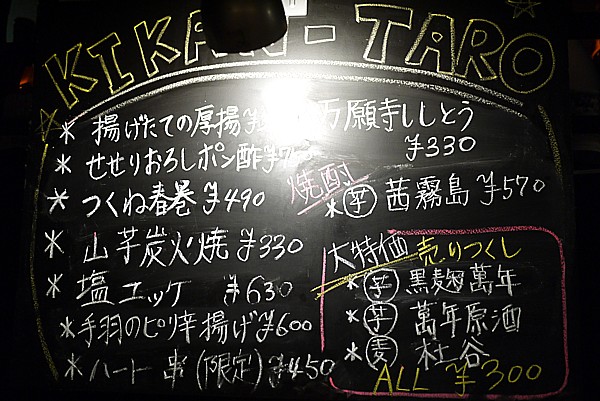 KIKAN-TARO
* 揚げたての厚揚 ¥
* せせりおろしポン酢 ¥7
* つくね春巻 ¥490
* 山芋炭火焼 ¥330
* 塩ユッケ ¥630
* 手羽のピリ辛揚げ ¥600
* ハート串(限定) ¥450
万願寺ししとう
¥330
焼酎
* 芋 茜霧島 ¥570
大特価 売りつくし
* 芋 黒麹萬年
* 芋 萬年原酒
* 麦 杜谷
ALL ¥300